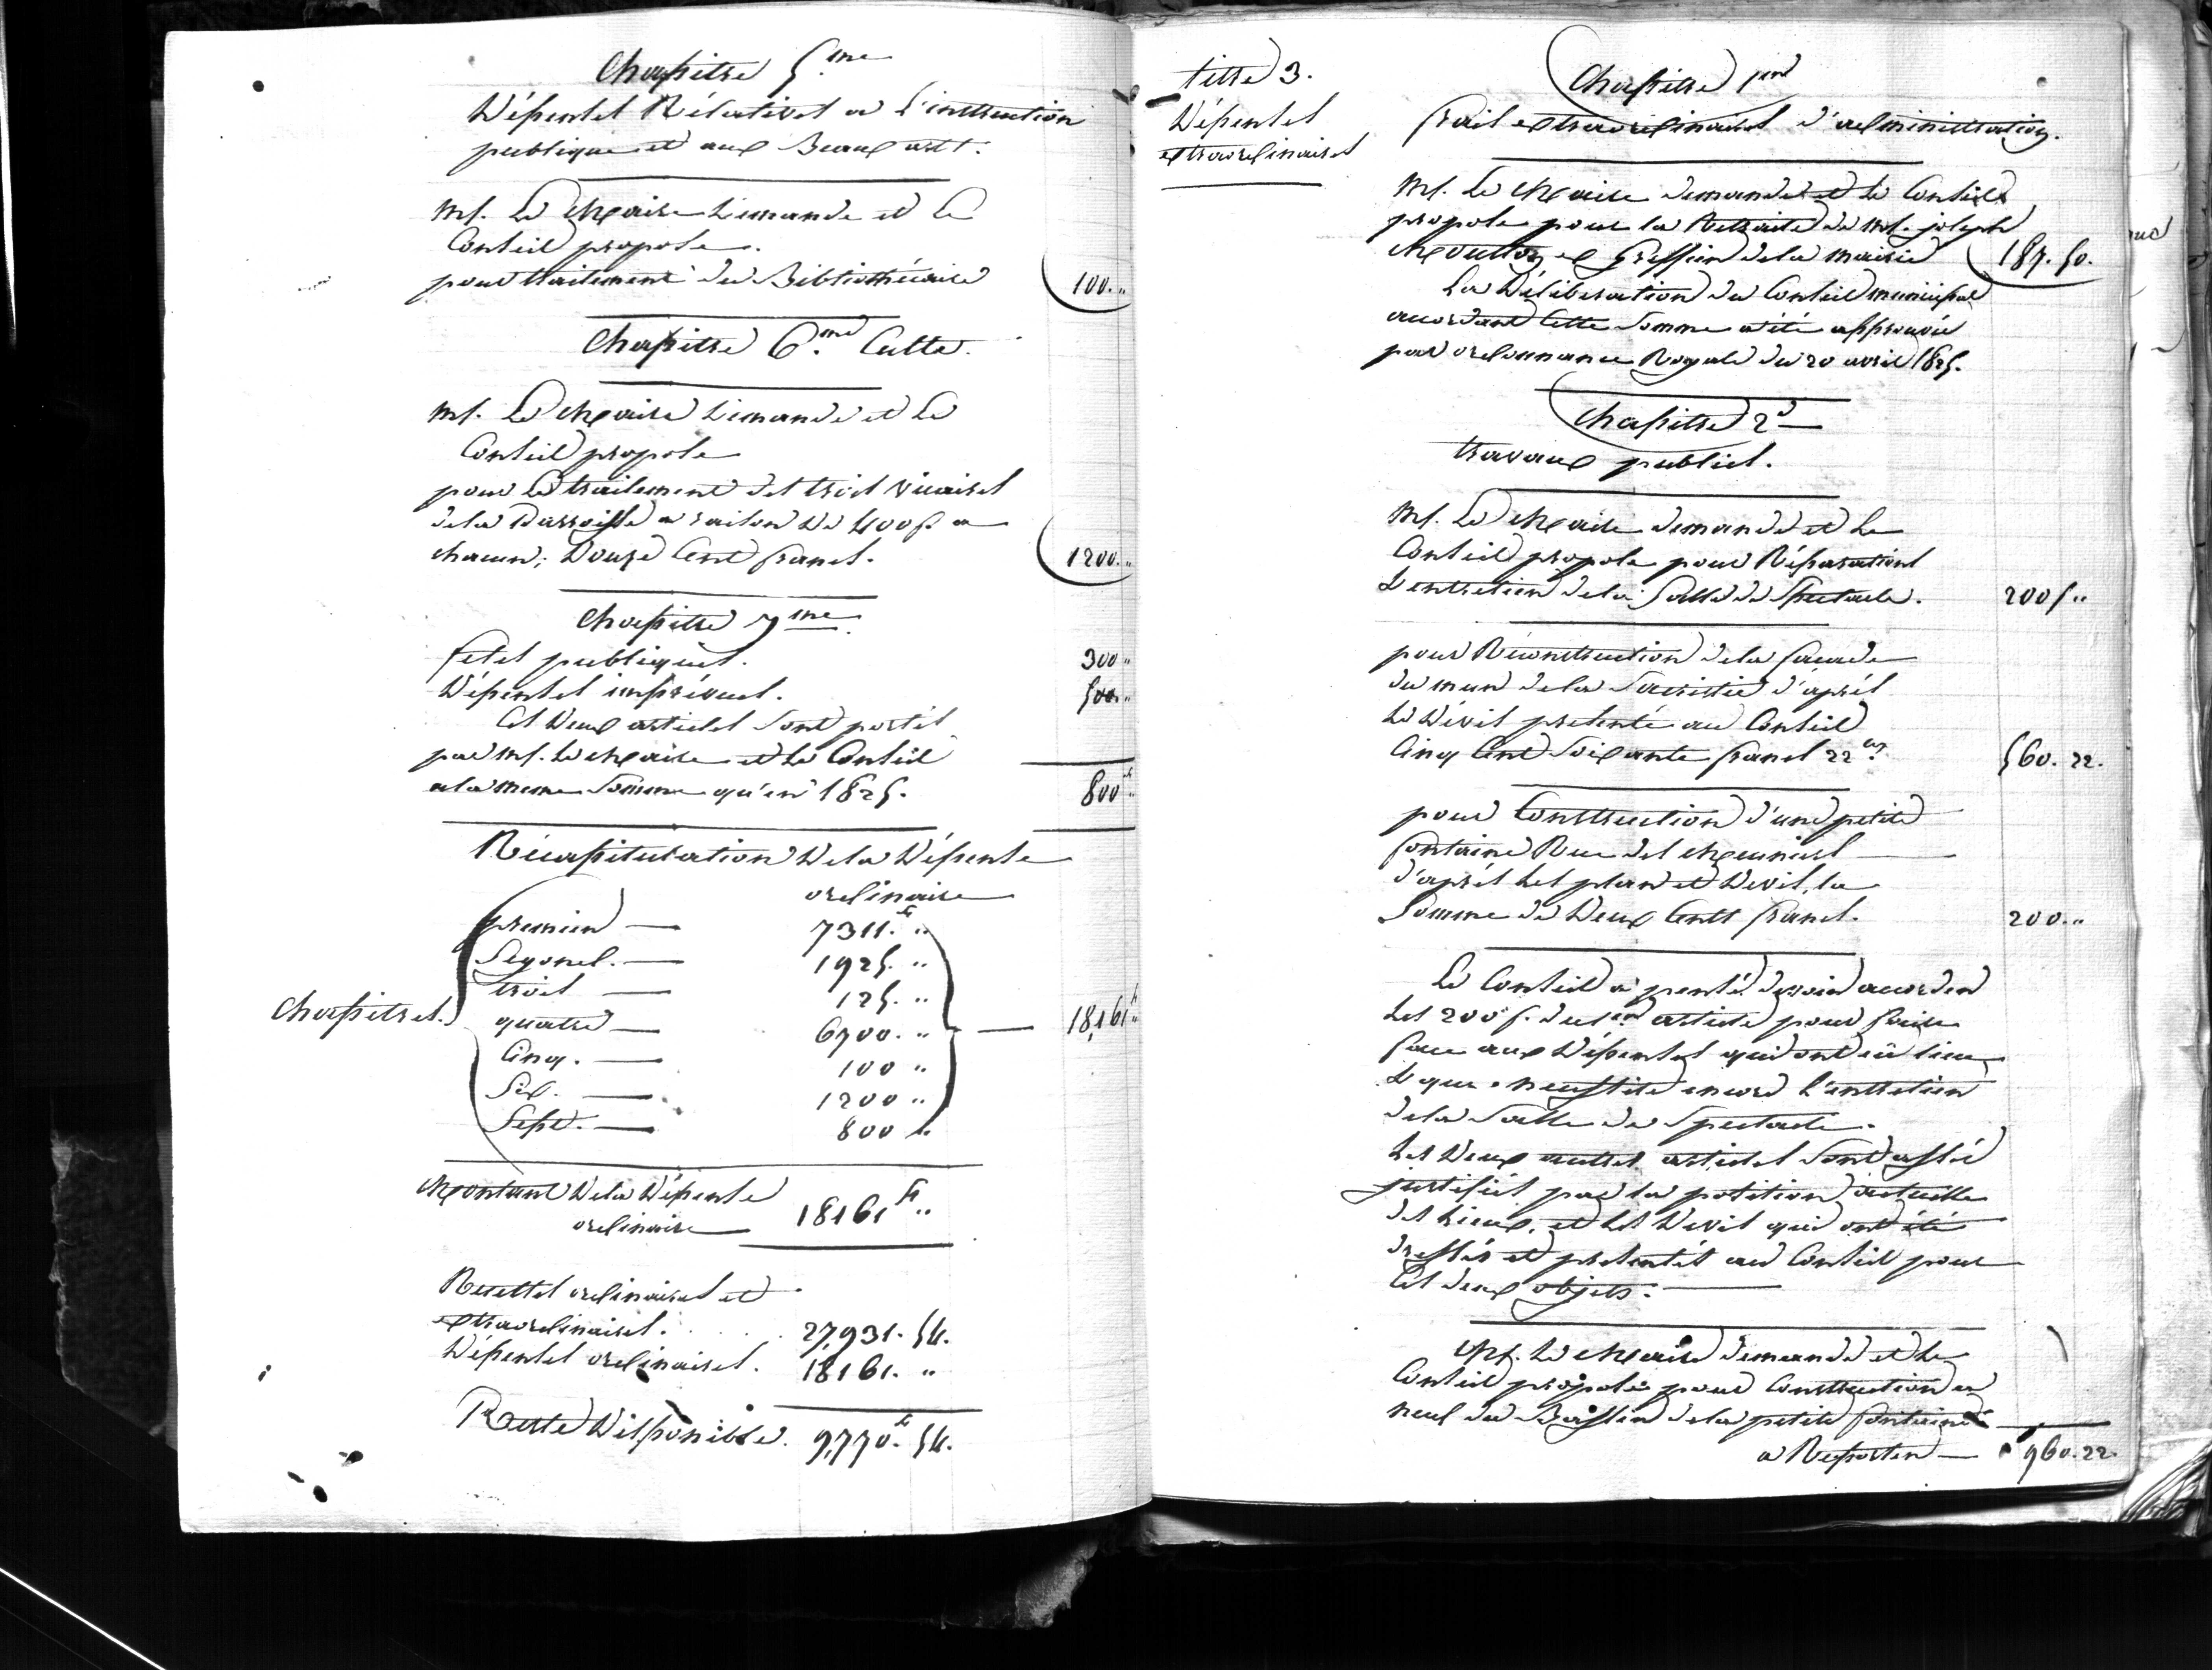 Chapitre 5.me
Dépenses Rélatives a l'instruction
publique et aux Beaux arts.
Mr. Le Maire Demande et le
Conseil propose.
pour traitement du Bibliothécaire
100. "
Chapitre 6.me Culte.
Mr. Le Maire Demande et le
Conseil propose
pour le traitement des trois vicaires
de la Parroisse a raison de 400 f a
chacun; Douze Cent francs.
1200. "
Chapitre 7me.
fetes publiques. 300 "
Dépenses imprévues. 500. "
Ces Deux articles sont portés
par Mr. Le Maire et le Conseil
a la meme somme qu'en 1825. 800 f "
Récapitulation De la Dépense
ordinaire
Chapitres.
premier — 7311. f "
Segond. — 1925. "
trois — 125. "
quatre — 6700. "
Cinq. — 100 "
Six. — 1200 "
Sept. — 800 "
— 18,161 f "
Montant De la Dépense
ordinaire 18161 f "
Recettes ordinaires et
extraordinaires. 27,931. 54.
Dépenses ordinaires. 18161. "
Reste Disponible. 9,770. f 54.
titre 3.
Dépenses
extraordinaires
Chapitre 1er
frais extraordinaires d'administration.
Mr. Le Maire demande et le Conseil
propose pour la Retraite de Mr. joseph
Moutton ex Greffier de la mairie 187. 50.
La Délibération du Conseil municipal
accordant Cette Somme a été approuvée
par ordonnance Royale du 20 avril 1825.
Chapitre 2d
travaux publics.
Mr. Le Maire demande et le
Conseil propose pour Réparations
& entretien de la Salle de Spectacle. 200 f "
pour Réconstruction de la façade
du mur de la Sacristie d'après
le Dévis presenté au Conseil
Cinq Cent Soixante francs 22 cs. 560. 22.
pour Construction d'une petite
fontaine Rue des Meuniers —
d'après les plan et Devis, la
Somme de Deux Cents francs. 200. "
Le Conseil a pensé devoir accorder
les 200 f. du 1er article pour faire
face aux Dépenses qui ont eü lieu
& que necessite encore l'entretien
de la Salle de Spectacle.
Les Deux autres articles sont assés
justifiés par la position actuelle
des Lieux, et les Devis qui ont été
dressés et presentés au Conseil pour
Ces deux objets. —
Mr. Le Maire demande et le
Conseil propose pour Construction a
neuf du Bassin de la petite fontaine
a Reporter — 960. 22.